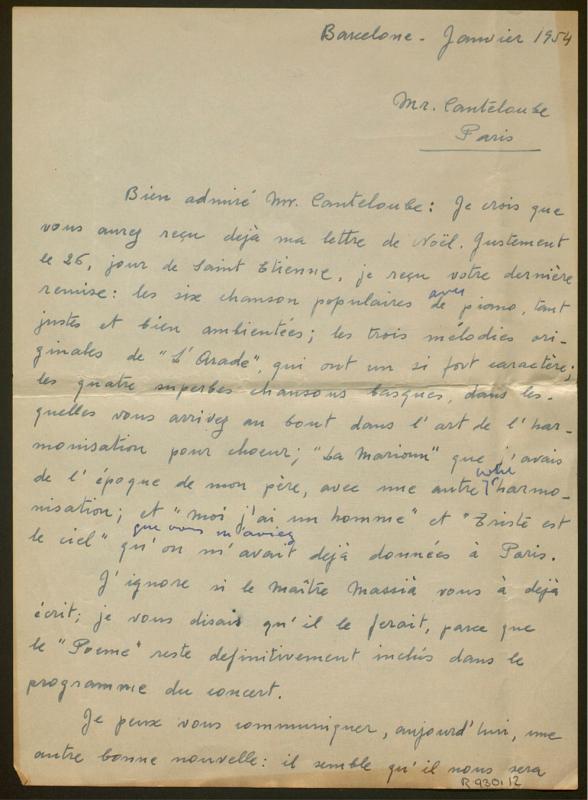 Barcelone - Janvier 1954
Mr. Canteloube
Paris
Bien admiré Mr. Canteloube: Je crois que
vous aurez reçu dejà ma lettre de Noël. Justement
le 26, jour de Saint Etienne, je reçu votre dernière
remise: les six chanson populaires de piano, tant
avec
justes et bien ambientées; les trois mélodies ori-
ginales de "L'Arada", qui ont un si fort caractère;
les quatre superbes chansons basques, dans les-
quelles vous arrivez au bout dans l'art de l'har-
monisation pour choeur; "La Marioun" que j'avais
de l'époque de mon père, avec une autre l'harmo-
votre
nisation; et "moi j'ai un homme" et "Triste est
que vous m'aviez
le ciel" qu'on m'avait dejà données à Paris.
J'ignore si le Maître Massià vous à dejà
écrit; je vous disais qu'il le ferait, parce que
le "Poeme" reste definitivement inclús dans le
programme du concert.
Je peux vous communiquer, aujourd'hui, une
autre bonne nouvelle: il semble qu'il nous sera
R.930.12